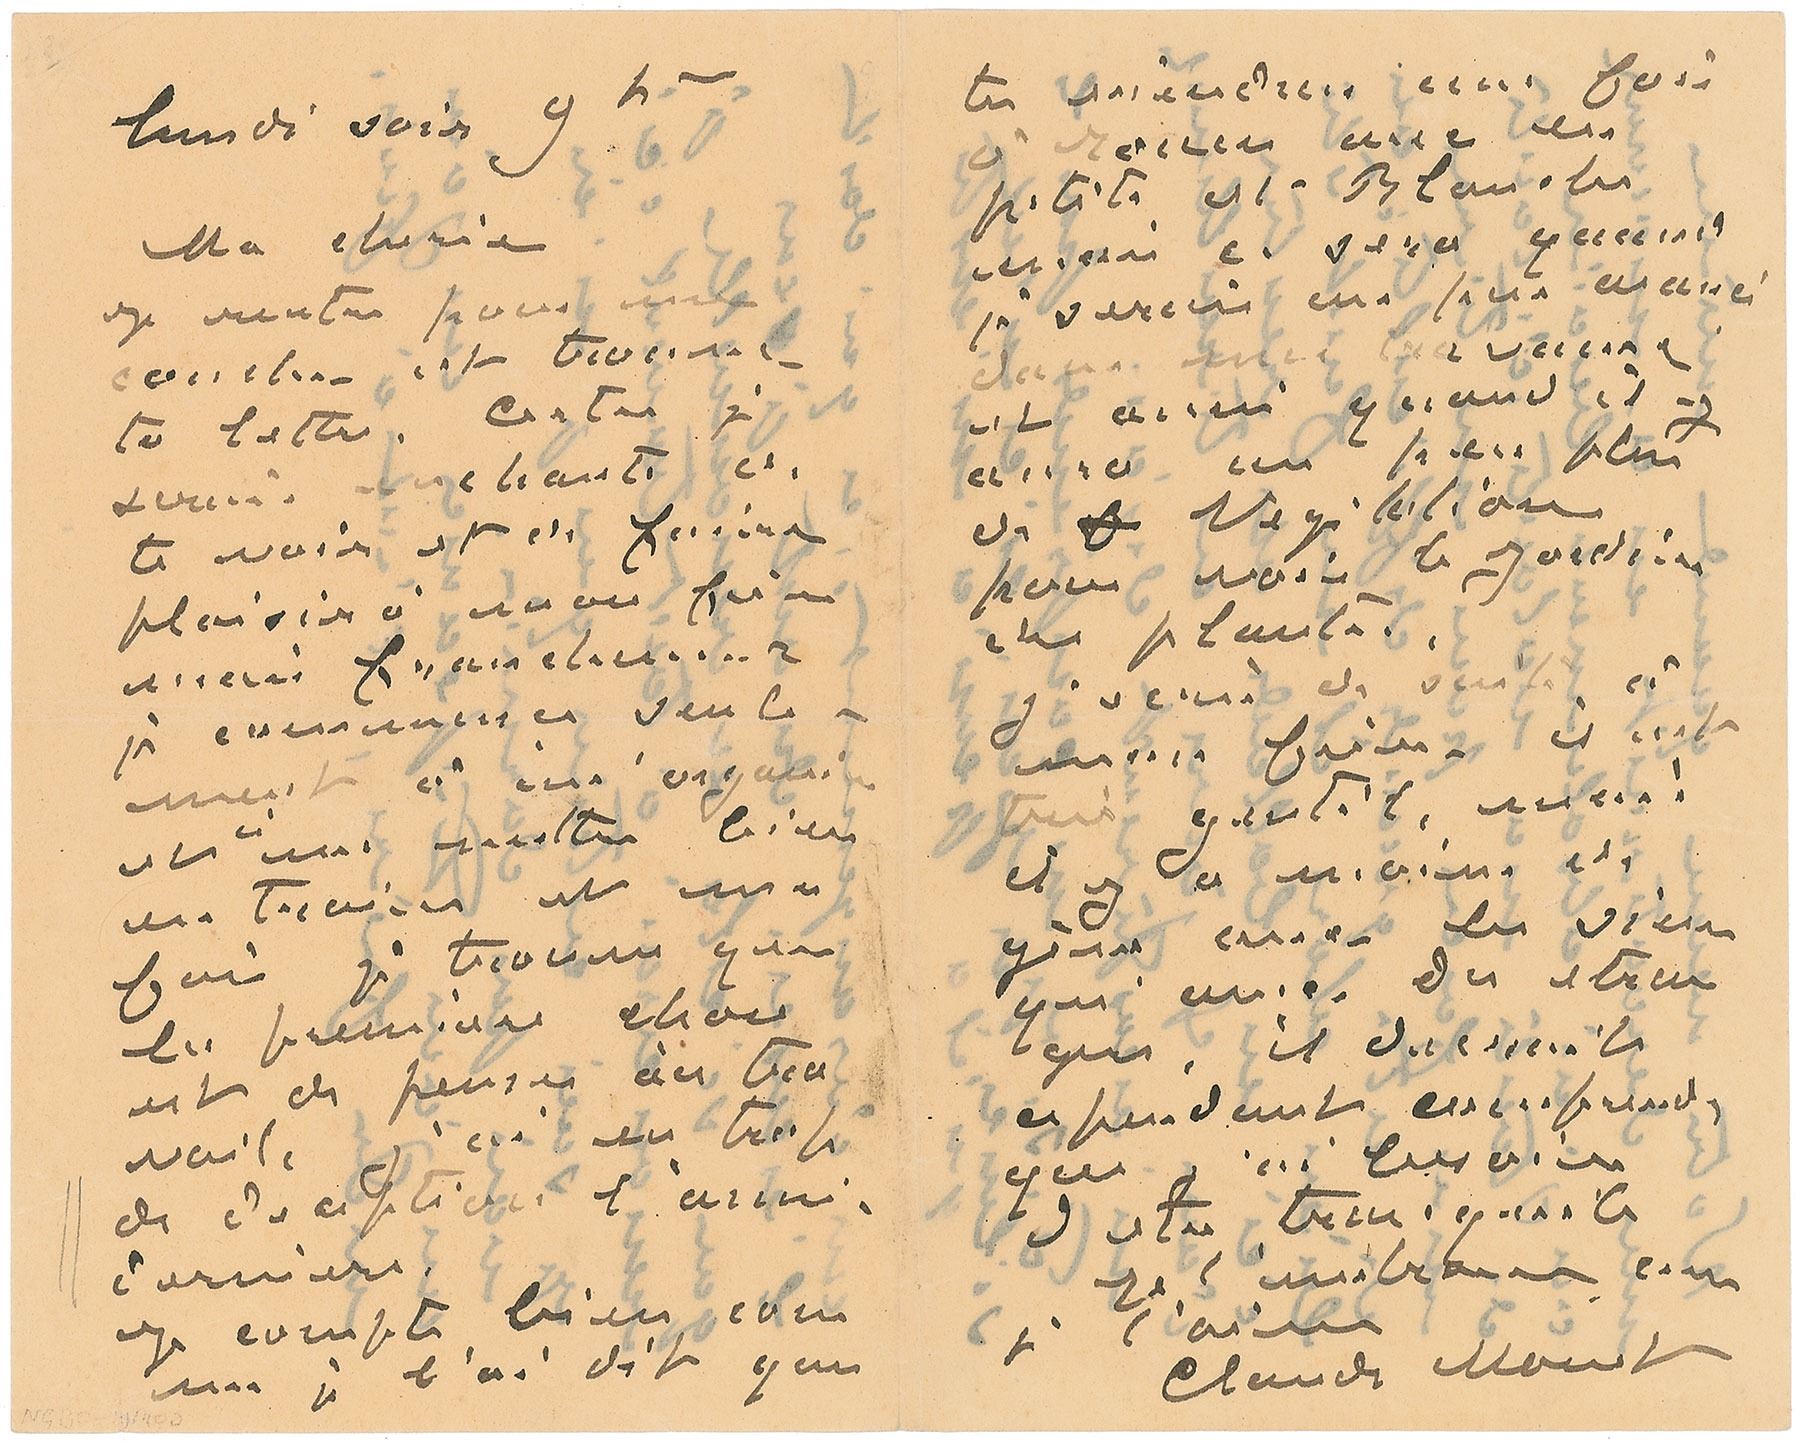 lundi soir, 9 h
Ma cherie
je rentre pour me
coucher et trouve
ta lettre. Certes je
serais enchanté de
te voir et de faire
plaisir à mon
aussi franchement
je commence seule-
ment à m'organiser
et à me mettre bien
en train et une
fois je trouve que
la première chose
est de penser au tra
vail, j'ai eu trop
de déceptions l'année
dernière.
je compte bien com
me je t'ai dit que
tu viendras une fois
à Rouen avec les
petits et Blanche
mais ce sera quand
je serai un peu avancé
dans mes
et aussi quand il y
aura un peu plus
de Végétation
pour voir le jardin
des plantes.
je serai de suite
mon frère, il est
très gentil, mais
il y a moins de
gêne avec les siens
qu'avec des étran
gers, il
cependant comprendre
que j'ai besoin
d'être tranquille
je t'embrasse comme
je t'aime
Claude Monet